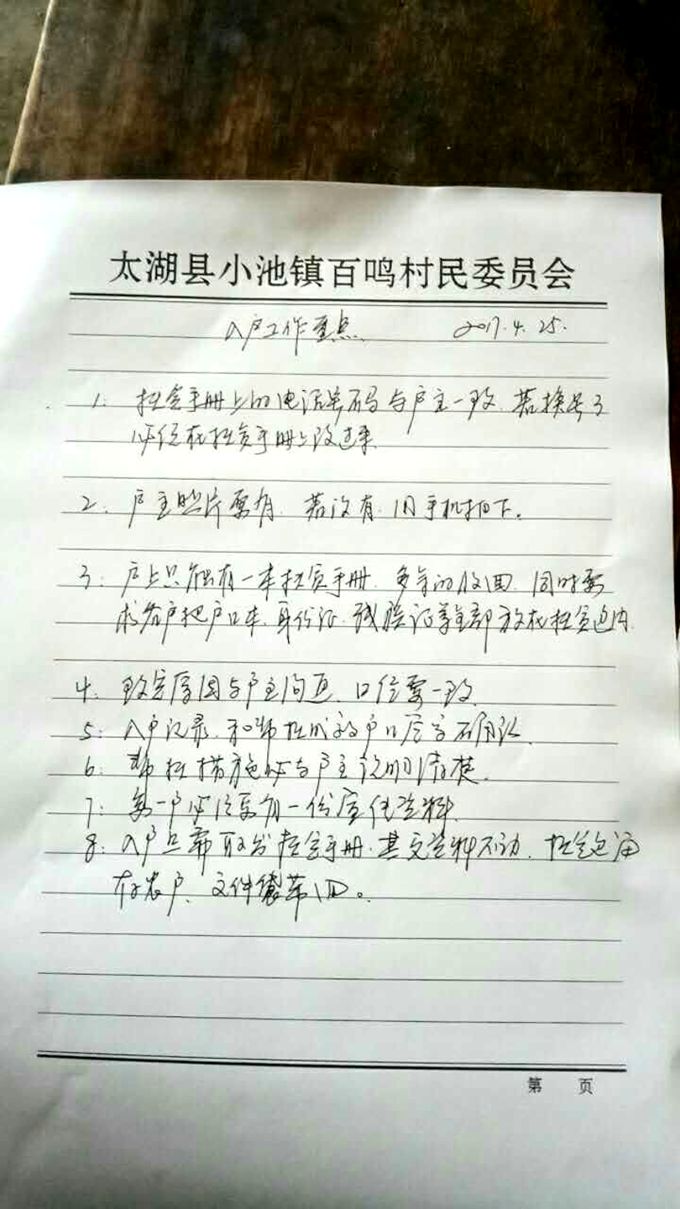 太湖县小池镇百鸣村民委员会
入户工作重点 2017.4.25.
1. 扶贫手册上的电话号码与户主一致.若换号了
必须在扶贫手册上改过来
2. 户主照片要有.若没有.用手机拍下。
3. 户上只能有一本扶贫手册.多余的收回.同时要
求农户把户口本.身份证.残疾证等全部放在扶贫包内.
4. 致穷原因与户主沟通.口径要一致
5. 入户记录.和帮扶成效户口签字确认.
6. 帮扶措施必与户主说明清楚.
7. 每一户必须要有一份宣传资料.
8. 入户只带扶贫手册.其它资料不动.扶贫包留
存农户、文件袋带回。
第 页